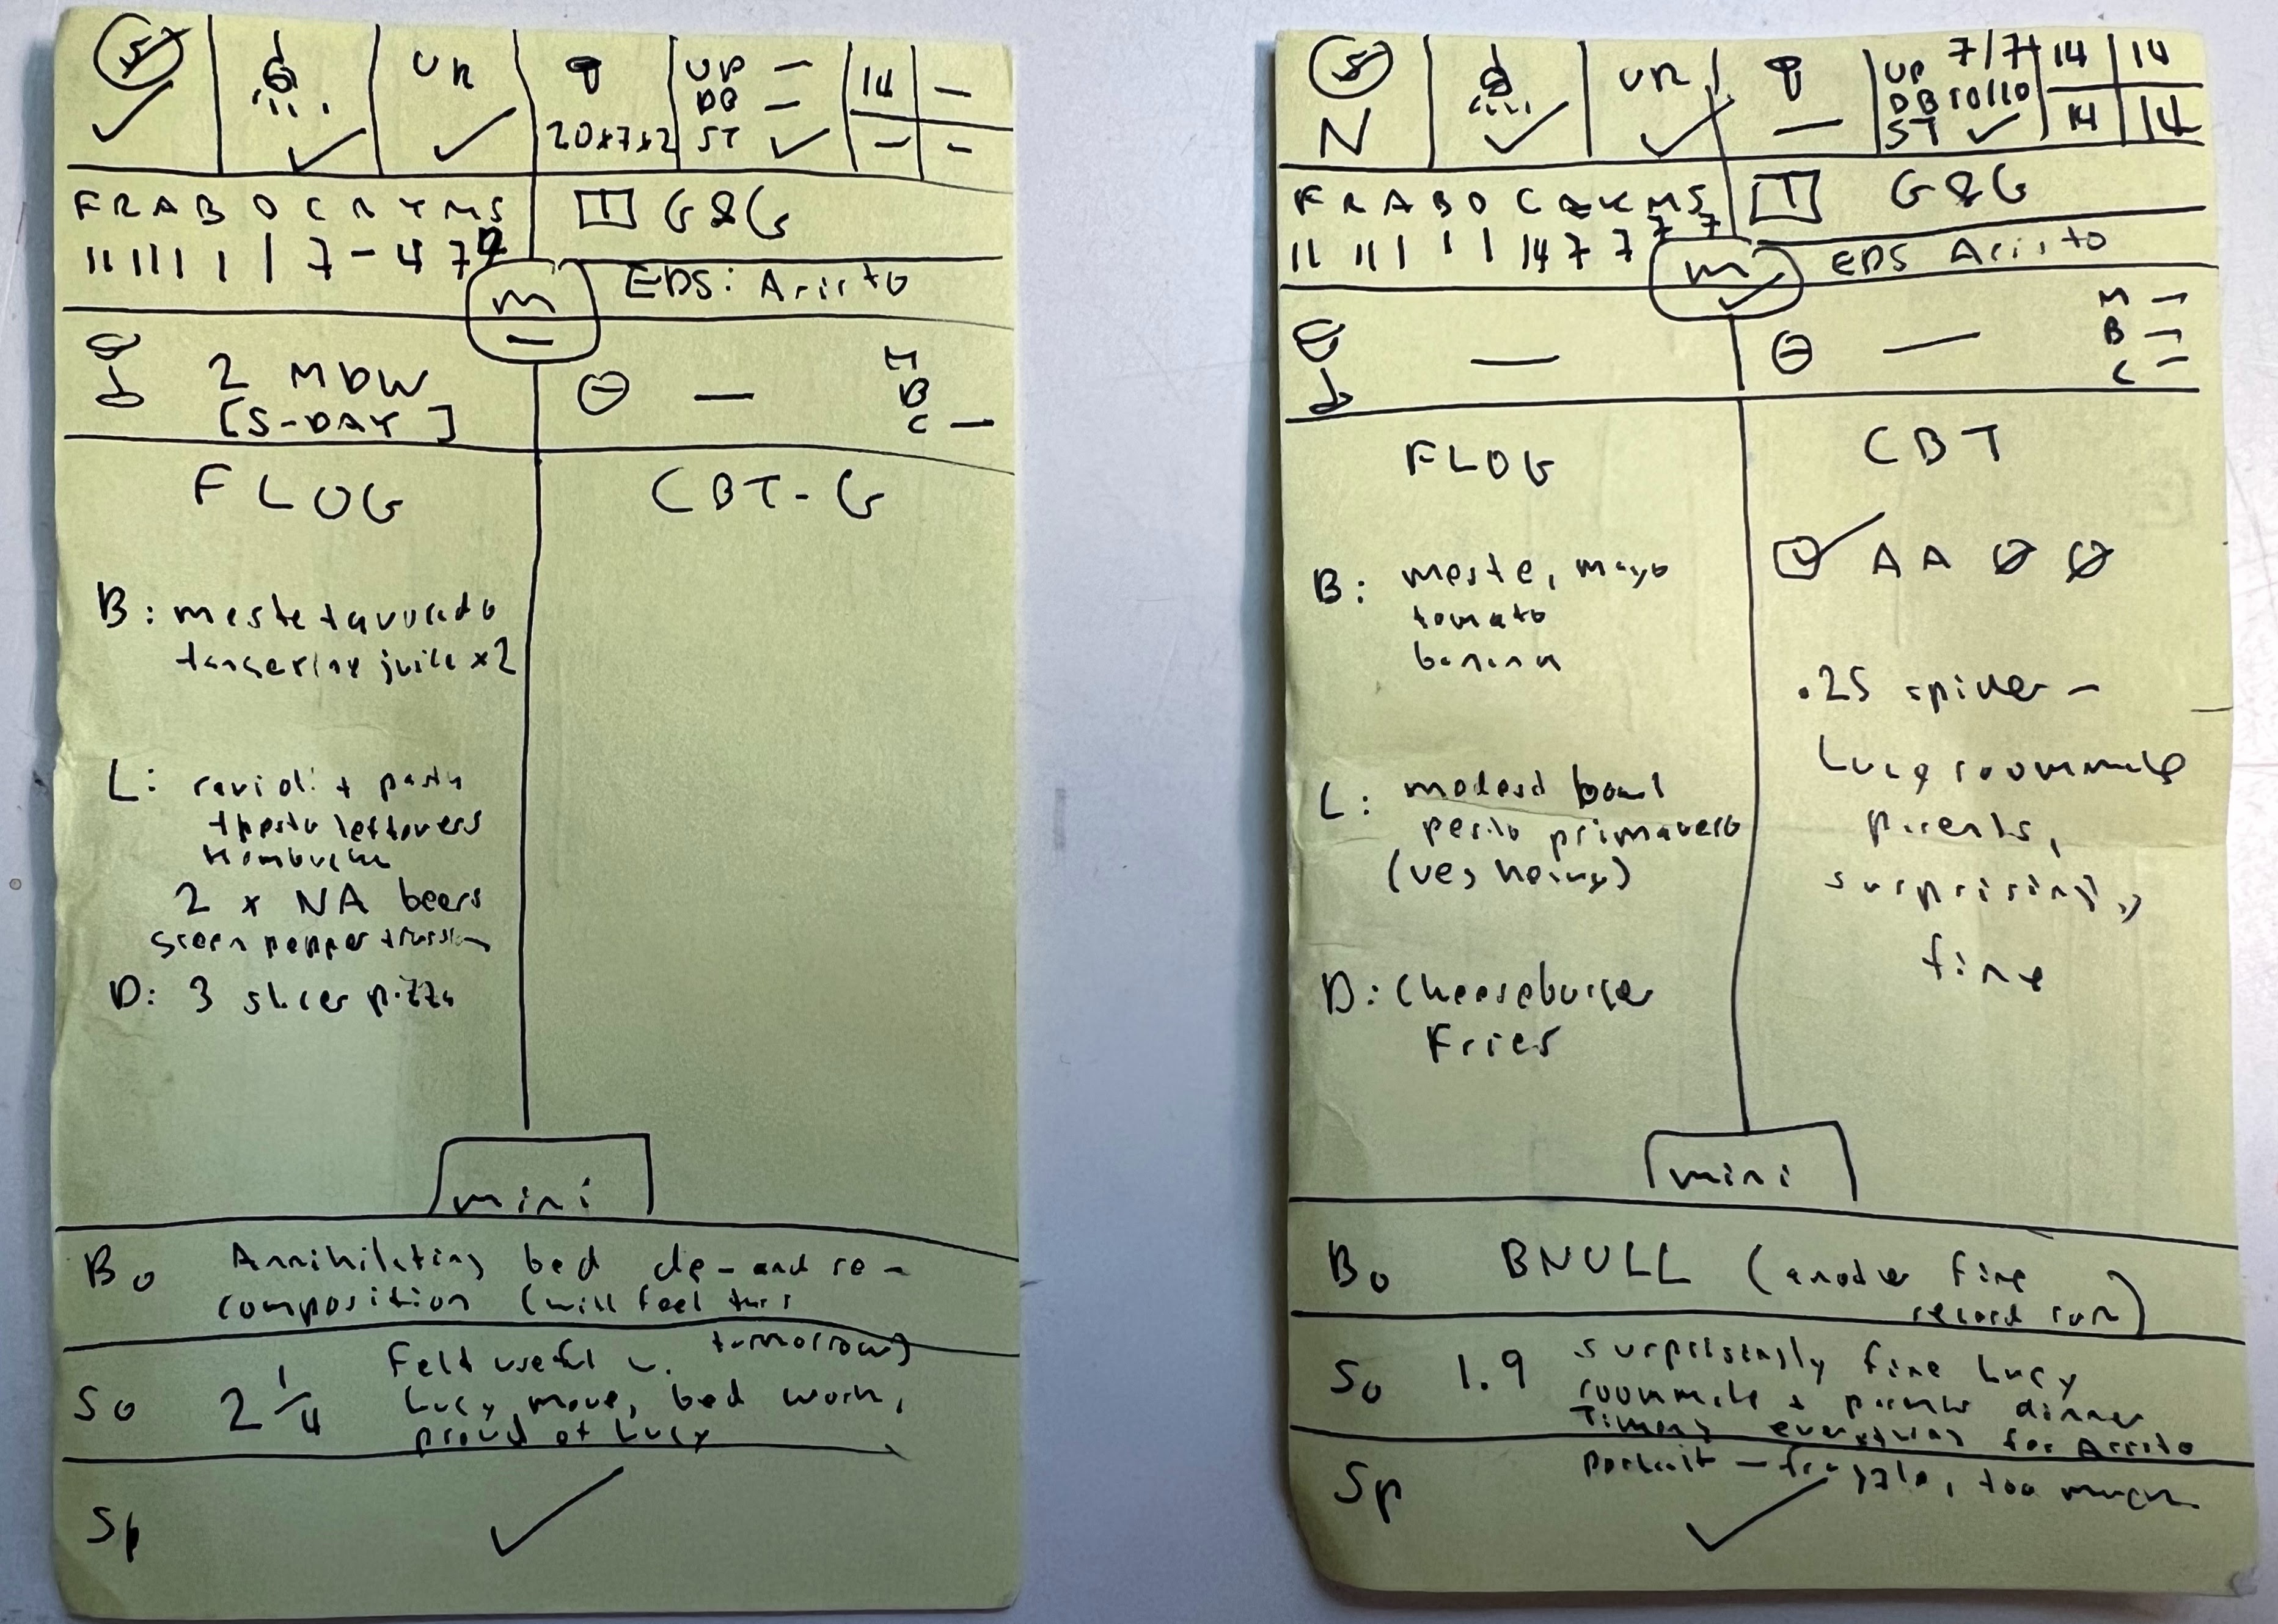 5
UR
20x7x2
UP —
DB —
ST ✓
14 —
— —
F R A B O C R Y M S
11 11 1 1 1 7 - 4 7
T G&G
m
—
EDS: Aristo
2 MDW
[5-DAY]
—
M
B
C —
FLOG
CBT-G
B: meste + avocado
tangerine juice x2
L: ravioli + pasta
+ pesto leftovers
2 x NA beers
green pepper
D: 3 slices pizza
mini
Bo Annihilating bed de-and re-
composition (will feel this
tomorrow)
So 2 1/4 Felt useful w.
Lucy move, bed work,
proud of Lucy
Sp ✓
5
N
UR
—
UP 7/7
DB 10/10
ST ✓
14 14
14 14
F R A B O C R Y M S
11 11 1 1 1 14 7 7 7 7
T G&G
m
EDS Aristo
—
—
M —
B —
C —
FLOG
CBT
B: meste, mayo
tomato
banana
A A Ø Ø
L: modest bowl
pesto primavera
(veg heavy)
D: Cheeseburger
Fries
.25 spike —
Lucy roommate
parents,
surprisingly
fine
mini
Bo BNULL (another fine
record run)
So 1.9 surprisingly fine Lucy
roommate + parents dinner
Timing everything for Aristo
portrait — fragile, too much
Sp ✓